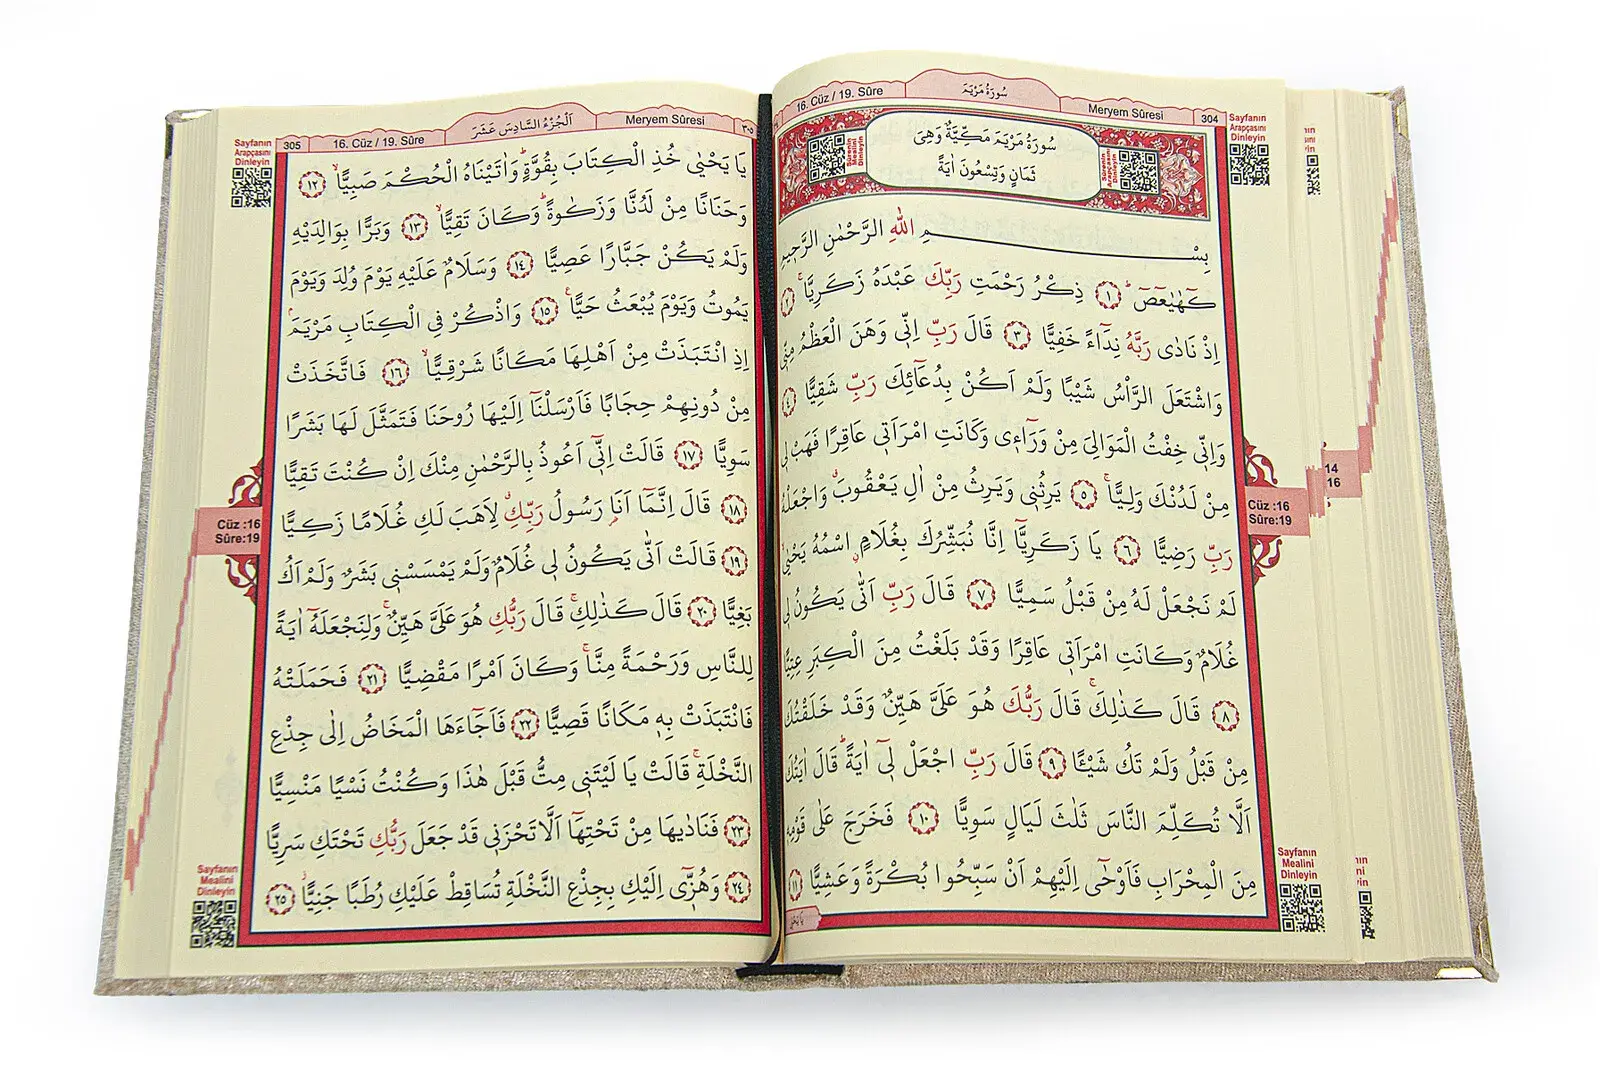 16. Cüz / 19. Sûre
سُورَةُ مَرْيَمَ
Meryem Sûresi
304
Sayfanın
Arapçasını
Dinleyin
سُورَةُ مَرْيَمَ مَكِّيَّةٌ وَهِيَ
ثَمَانٍ وَتِسْعُونَ اٰيَةً
Sûrenin
Mealini
Dinleyin
Sûrenin
Arapçasını
Dinleyin
بِسْمِ اللّٰهِ الرَّحْمٰنِ الرَّحٖيمِ
كٓهٰيٰعٓصٓ ۚ ﴿١﴾ ذِكْرُ رَحْمَتِ رَبِّكَ عَبْدَهُ زَكَرِيَّا ۚ ﴿٢﴾
اِذْ نَادٰى رَبَّهُ نِدَٓاءً خَفِيًّا ﴿٣﴾ قَالَ رَبِّ اِنّٖى وَهَنَ الْعَظْمُ مِنّٖى
وَاشْتَعَلَ الرَّاْسُ شَيْبًا وَلَمْ اَكُنْ بِدُعَٓائِكَ رَبِّ شَقِيًّا ﴿٤﴾
وَاِنّٖى خِفْتُ الْمَوَالِىَ مِنْ وَرَٓاءٖى وَكَانَتِ امْرَاَتٖى عَاقِرًا فَهَبْ لٖى
مِنْ لَدُنْكَ وَلِيًّا ۙ ﴿٥﴾ يَرِثُنٖى وَيَرِثُ مِنْ اٰلِ يَعْقُوبَ وَاجْعَلْهُ
رَبِّ رَضِيًّا ﴿٦﴾ يَا زَكَرِيَّٓا اِنَّا نُبَشِّرُكَ بِغُلَامٍ ۨ اسْمُهُ يَحْيٰى
لَمْ نَجْعَلْ لَهُ مِنْ قَبْلُ سَمِيًّا ﴿٧﴾ قَالَ رَبِّ اَنّٰى يَكُونُ لٖى
غُلَامٌ وَكَانَتِ امْرَاَتٖى عَاقِرًا وَقَدْ بَلَغْتُ مِنَ الْكِبَرِ عِتِيًّا
﴿٨﴾ قَالَ كَذٰلِكَ ۚ قَالَ رَبُّكَ هُوَ عَلَىَّ هَيِّنٌ وَقَدْ خَلَقْتُكَ
مِنْ قَبْلُ وَلَمْ تَكُ شَيْئًا ﴿٩﴾ قَالَ رَبِّ اجْعَلْ لٖٓى اٰيَةً ۜ قَالَ اٰيَتُكَ
اَلَّا تُكَلِّمَ النَّاسَ ثَلٰثَ لَيَالٍ سَوِيًّا ﴿١٠﴾ فَخَرَجَ عَلٰى قَوْمِهٖ
مِنَ الْمِحْرَابِ فَاَوْحٰٓى اِلَيْهِمْ اَنْ سَبِّحُوا بُكْرَةً وَعَشِيًّا ﴿١١﴾
يَا يَحْيٰى
Cüz :16
Sûre:19
14
16
Sayfanın
Mealini
Dinleyin
Sayfanın
Arapçasını
Dinleyin
305
16. Cüz / 19. Sûre
اَلْجُزْءُ السَّادِسَ عَشَرَ
Meryem Sûresi
٣٠٥
يَا يَحْيٰى خُذِ الْكِتَابَ بِقُوَّةٍ ۜ وَاٰتَيْنَاهُ الْحُكْمَ صَبِيًّا ۙ ﴿١٢﴾
وَحَنَانًا مِنْ لَدُنَّا وَزَكٰوةً ۜ وَكَانَ تَقِيًّا ۙ ﴿١٣﴾ وَبَرًّا بِوَالِدَيْهِ
وَلَمْ يَكُنْ جَبَّارًا عَصِيًّا ﴿١٤﴾ وَسَلَامٌ عَلَيْهِ يَوْمَ وُلِدَ وَيَوْمَ
يَمُوتُ وَيَوْمَ يُبْعَثُ حَيًّا ۟ ﴿١٥﴾ وَاذْكُرْ فِى الْكِتَابِ مَرْيَمَ ۢ
اِذِ انْتَبَذَتْ مِنْ اَهْلِهَا مَكَانًا شَرْقِيًّا ۙ ﴿١٦﴾ فَاتَّخَذَتْ
مِنْ دُونِهِمْ حِجَابًا فَاَرْسَلْنَٓا اِلَيْهَا رُوحَنَا فَتَمَثَّلَ لَهَا بَشَرًا
سَوِيًّا ﴿١٧﴾ قَالَتْ اِنّٖٓى اَعُوذُ بِالرَّحْمٰنِ مِنْكَ اِنْ كُنْتَ تَقِيًّا
﴿١٨﴾ قَالَ اِنَّمَٓا اَنَا۬ رَسُولُ رَبِّكِ ۗ لِاَهَبَ لَكِ غُلَامًا زَكِيًّا
﴿١٩﴾ قَالَتْ اَنّٰى يَكُونُ لٖى غُلَامٌ وَلَمْ يَمْسَسْنٖى بَشَرٌ وَلَمْ اَكُ
بَغِيًّا ﴿٢٠﴾ قَالَ كَذٰلِكِ ۚ قَالَ رَبُّكِ هُوَ عَلَىَّ هَيِّنٌ ۚ وَلِنَجْعَلَهُٓ اٰيَةً
لِلنَّاسِ وَرَحْمَةً مِنَّا ۚ وَكَانَ اَمْرًا مَقْضِيًّا ﴿٢١﴾ فَحَمَلَتْهُ
فَانْتَبَذَتْ بِهٖ مَكَانًا قَصِيًّا ﴿٢٢﴾ فَاَجَٓاءَهَا الْمَخَاضُ اِلٰى جِذْعِ
النَّخْلَةِ ۚ قَالَتْ يَا لَيْتَنٖى مِتُّ قَبْلَ هٰذَا وَكُنْتُ نَسْيًا مَنْسِيًّا
﴿٢٣﴾ فَنَادٰيهَا مِنْ تَحْتِهَٓا اَلَّا تَحْزَنٖى قَدْ جَعَلَ رَبُّكِ تَحْتَكِ سَرِيًّا
﴿٢٤﴾ وَهُزّٖٓى اِلَيْكِ بِجِذْعِ النَّخْلَةِ تُسَاقِطْ عَلَيْكِ رُطَبًا جَنِيًّا ۘ ﴿٢٥﴾
Cüz :16
Sûre:19
Sayfanın
Mealini
Dinleyin